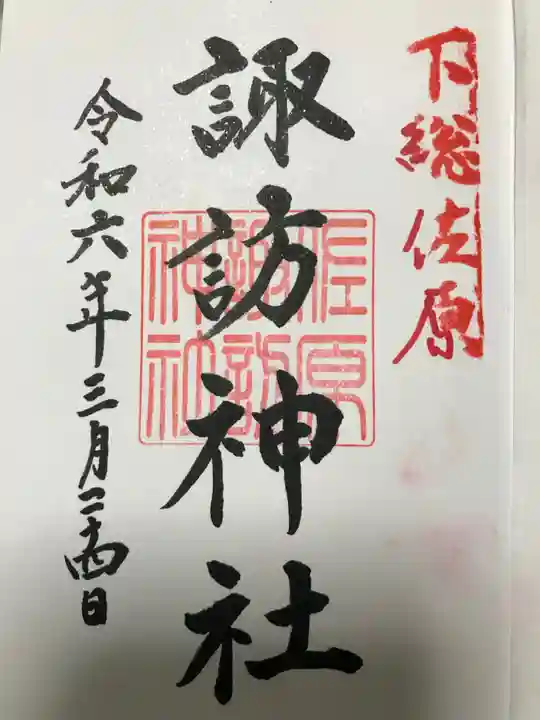 下総佐原
諏訪神社
佐原
諏訪
神社
令和六年三月二十四日